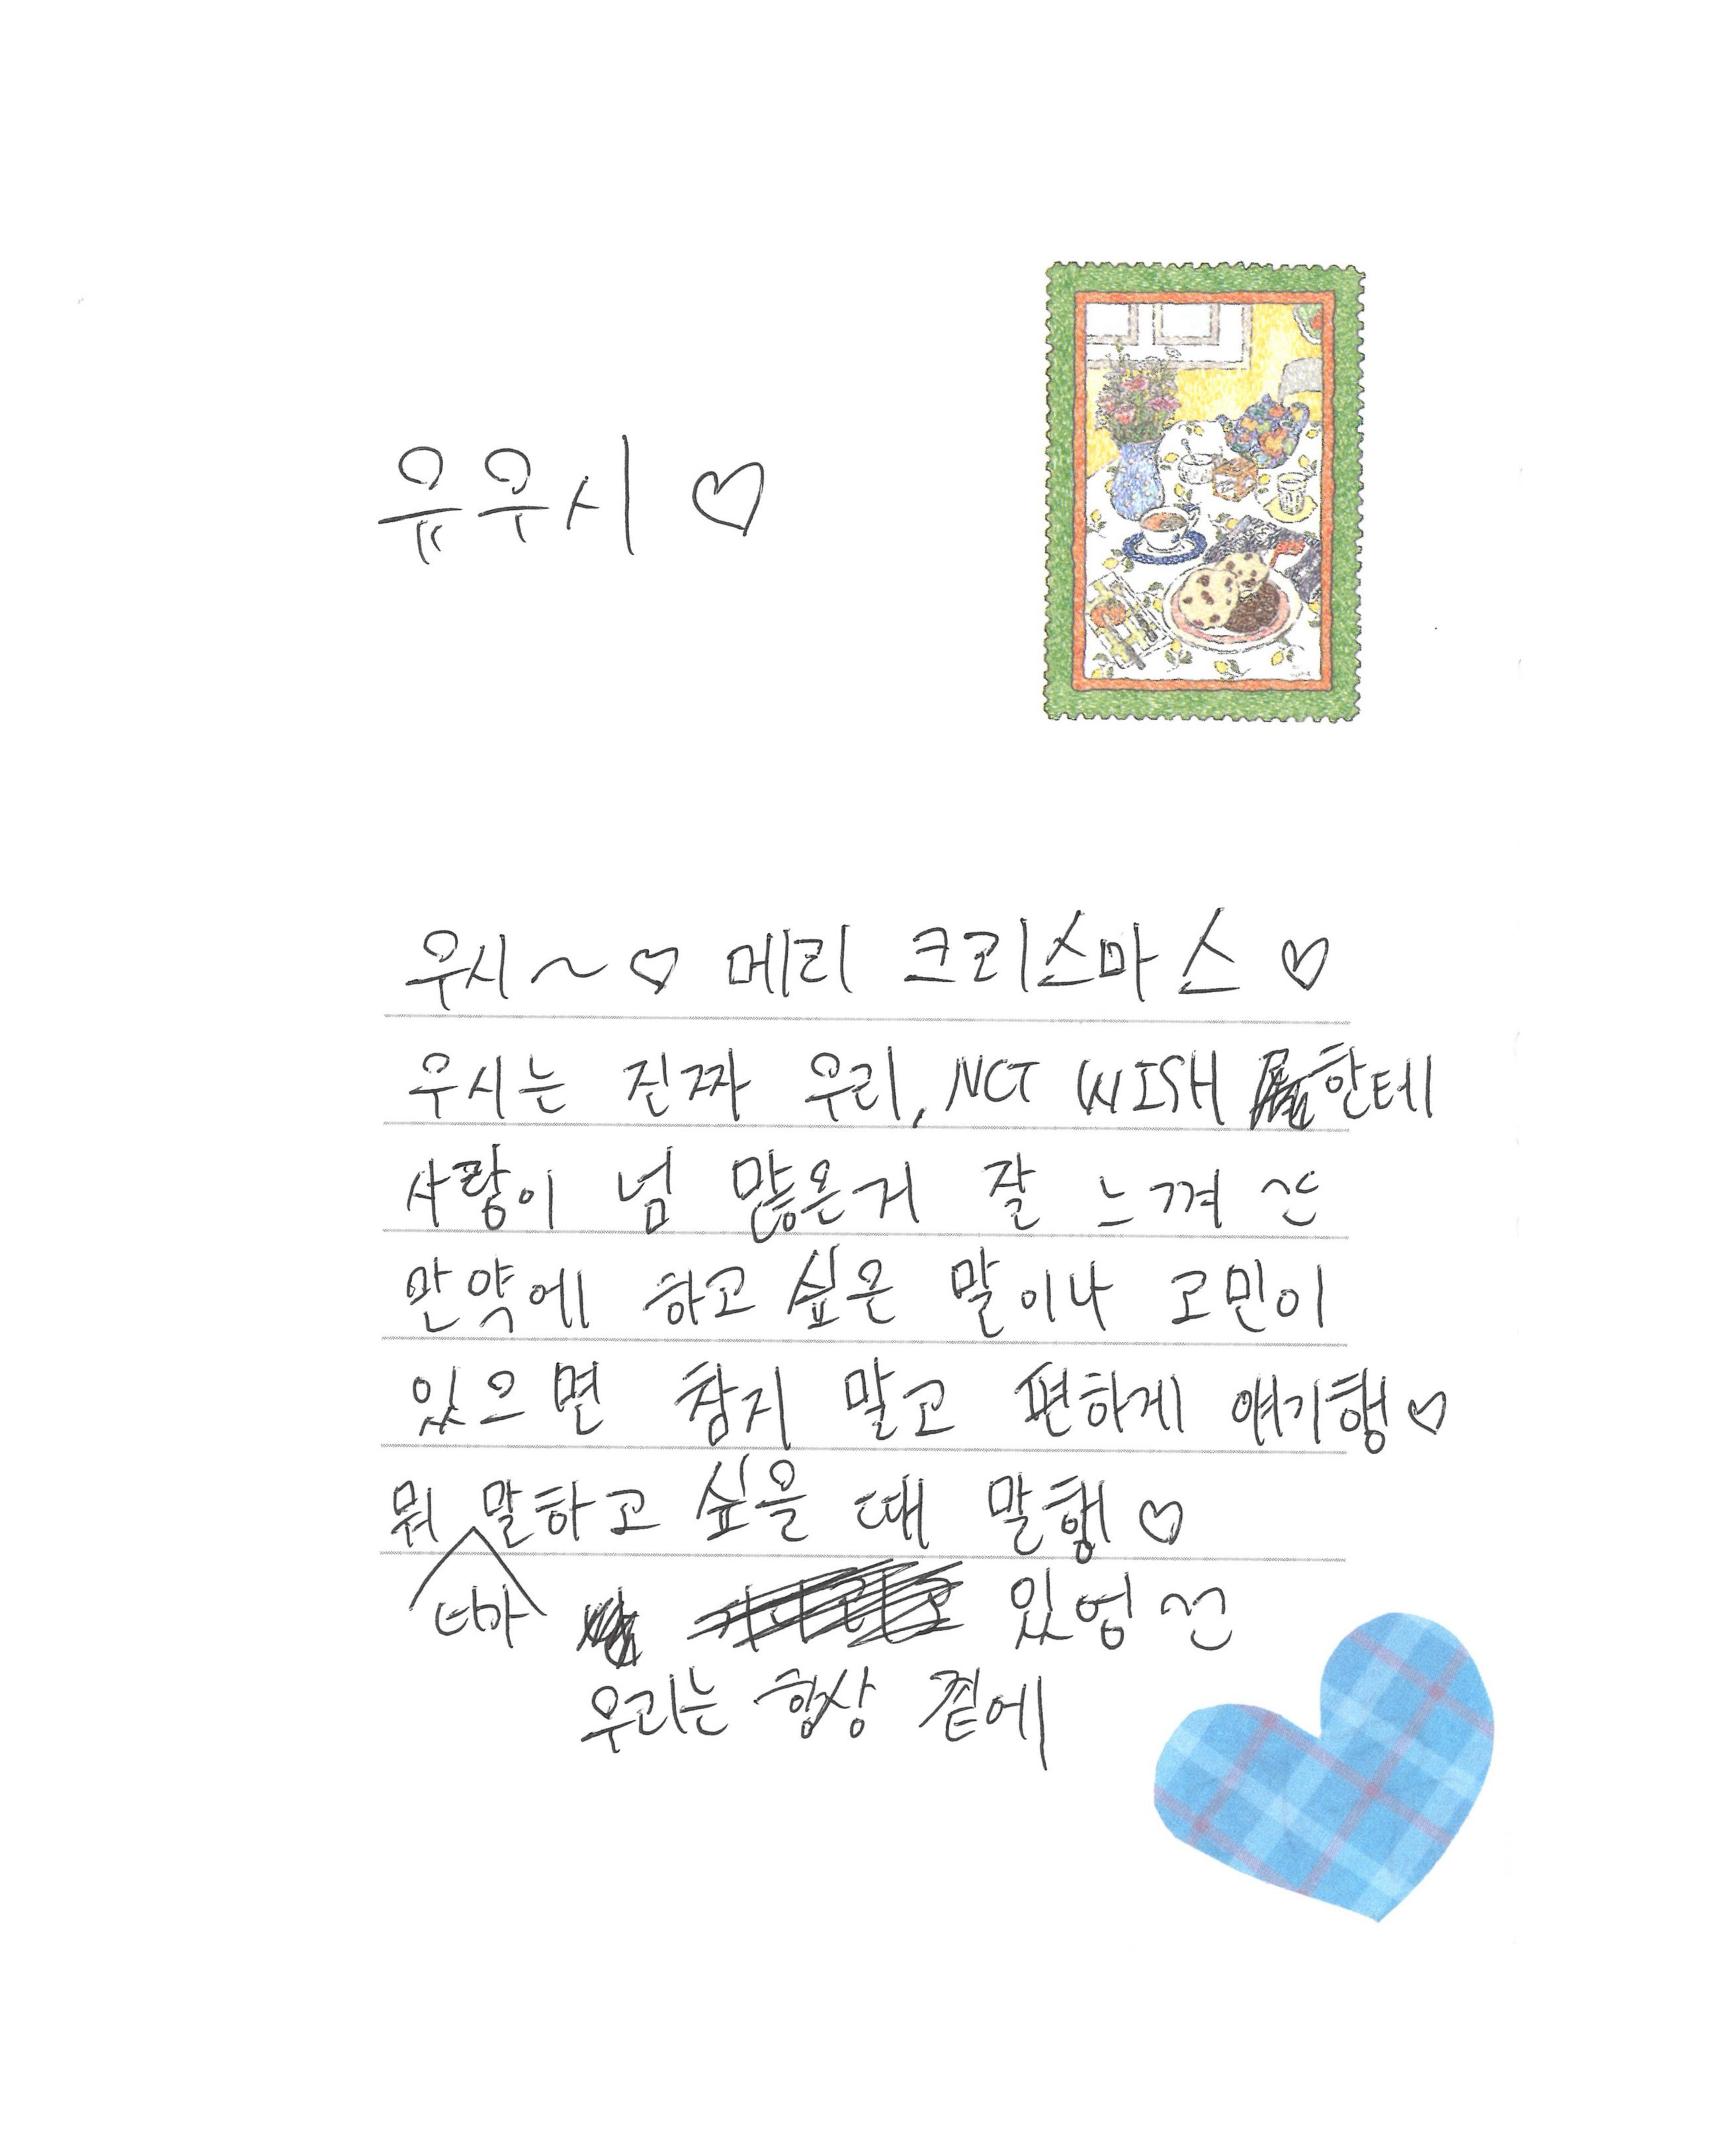 유우시 ♡
우시~♡ 메리 크리스마스 ♡
우시는 진짜 우리, NCT WISH 한테
사랑이 넘 많은거 잘 느껴
만약에 하고 싶은 말이나 고민이
있으면 참지 말고 편하게 얘기행♡
뭐 말하고 싶을 때 말행♡
더마 있엉
우리는 항상 곁에